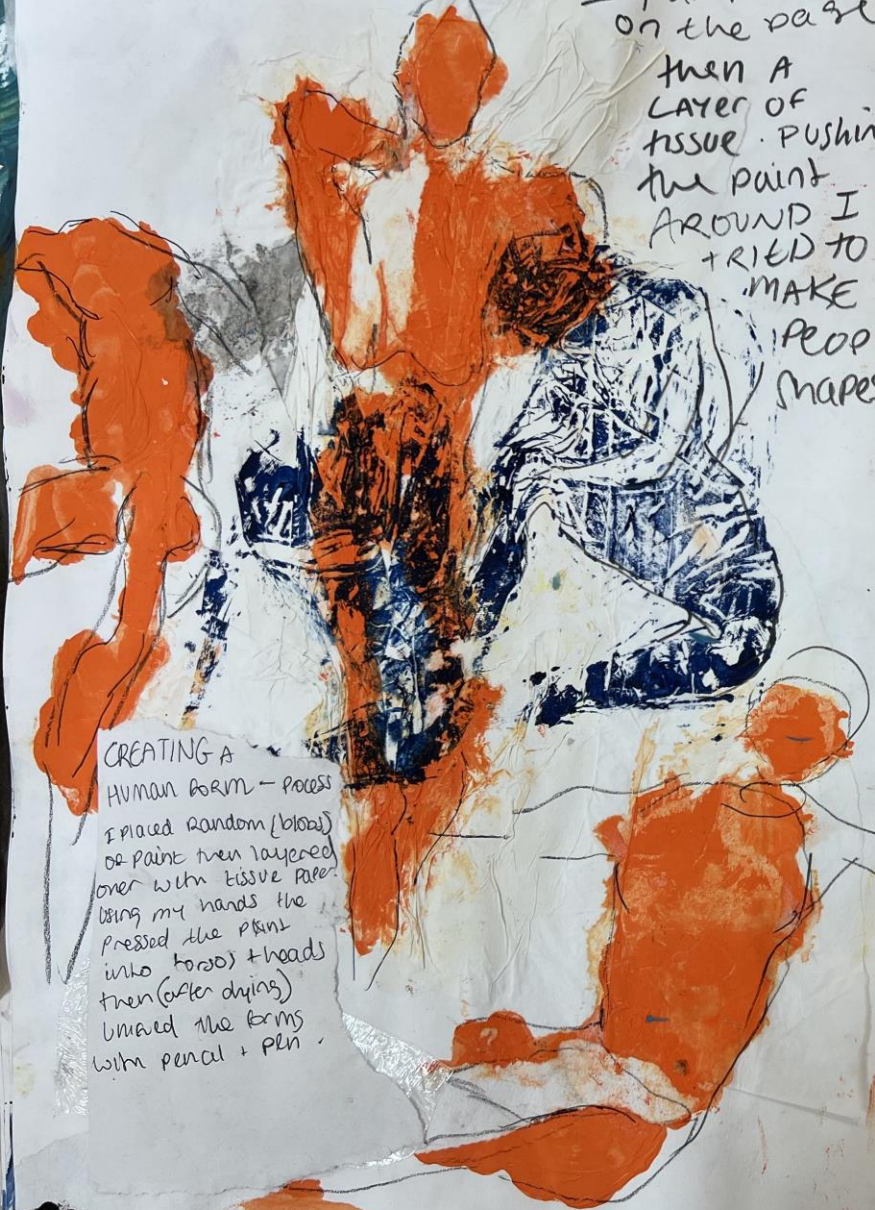 on the page
then A
LAYER OF
tissue. Pushin
the paint
AROUND I
tRIED TO
MAKE
PEOP
Shapes
CREATING A
HUMAN FORM – PROCESS
I PLACED RANDOM (blobs)
OF PAINT then layered
over with tissue paper
Using my hands the
pressed the paint
into torsos + heads
then (after drying)
the forms
with pencil + pen.